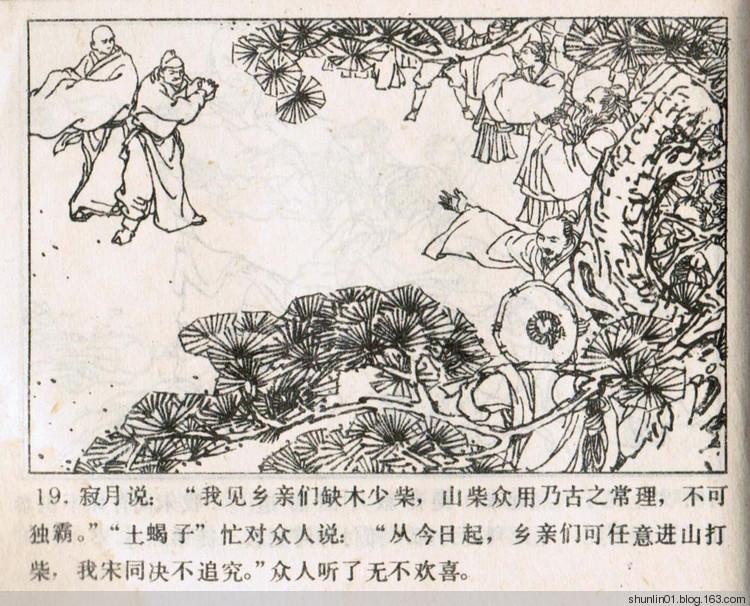 19. 寂月说：“我见乡亲们缺木少柴，山柴众用乃古之常理，不可
独霸。”“土蝎子”忙对众人说：“从今日起，乡亲们可任意进山打
柴，我宋同决不追究。”众人听了无不欢喜。
shunlin01.blog.163.com